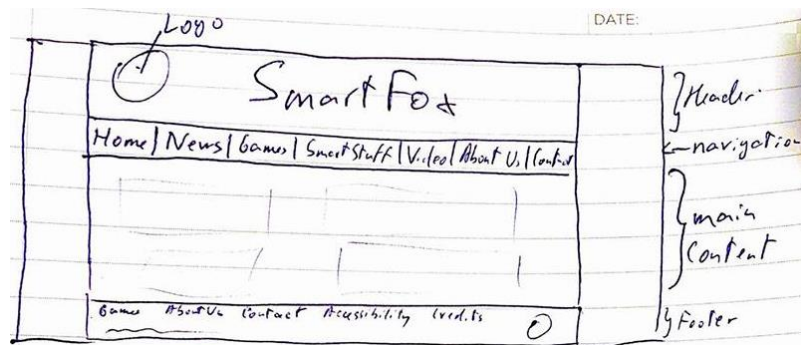 DATE:
Logo
Smart Fox
Header
Home | News | Games | Smart Stuff | Video | About Us | Contact
navigation
main
Content
Games About Us Contact Accessibility Credits
Footer